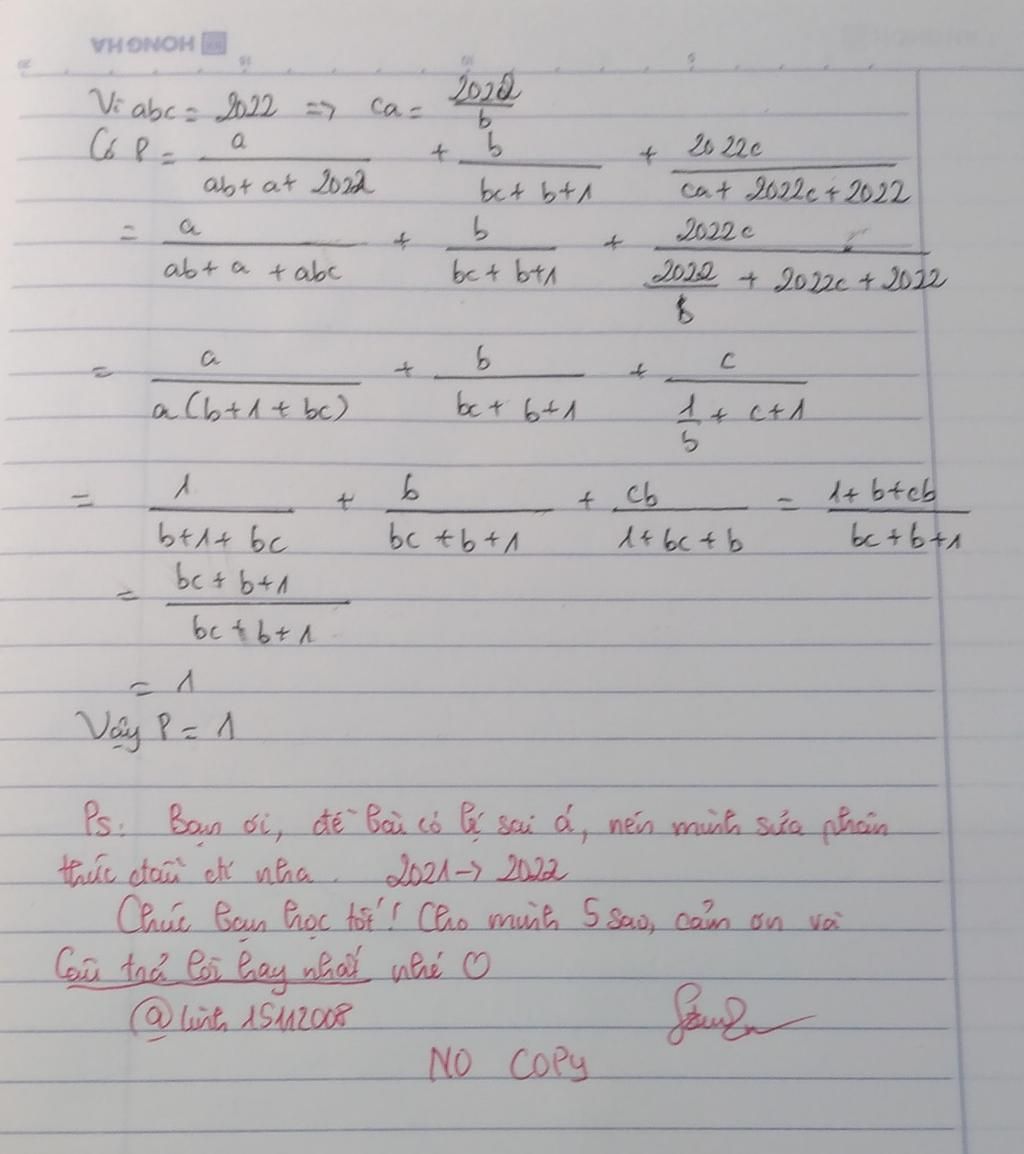 HONG HA
Vì abc = 2022 => ca = 2022/b
Có P = a/(ab + a + 2022) + b/(bc + b + 1) + 2022c/(ca + 2022c + 2022)
= a/(ab + a + abc) + b/(bc + b + 1) + 2022c/(2022/b + 2022c + 2022)
= a/(a(b + 1 + bc)) + b/(bc + b + 1) + c/(1/b + c + 1)
= 1/(b + 1 + bc) + b/(bc + b + 1) + cb/(1 + bc + b) = (1 + b + cb)/(bc + b + 1)
= (bc + b + 1)/(bc + b + 1)
= 1
Vậy P = 1
Ps: Bạn ơi, đề bài có lẽ sai á, nên mình sửa phân
thức đầu đi nha. 2021 -> 2022
Chúc bạn học tốt! Cho mình 5 sao, cảm ơn và
câu trả lời hay nhất nhé ♡
@linh15112008
NO COPY